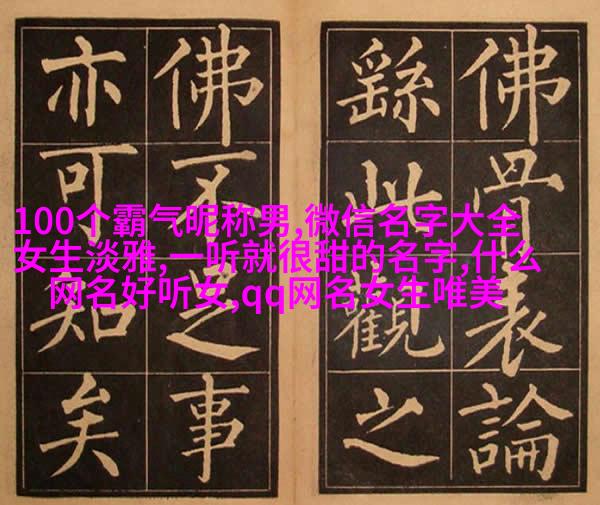 100个霸气昵称男,微信名字大全
女生淡雅,一听就很甜的名字,什么
网名好听女,qq网名女生唯美
佛骨表論
繇此觀之
佛不足事
亦可知矣